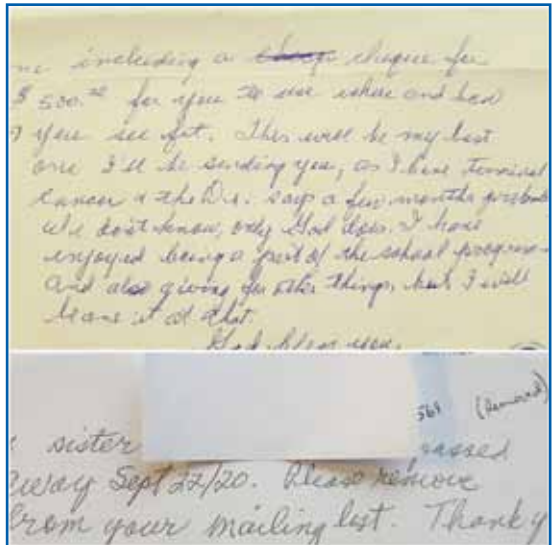 including a cheque for
$500.00 for you to use where and how
you see fit. This will be my last
one I'll be sending you, as I have terminal
cancer & the Dr. says a few months
We don't know, only God does. I have
enjoyed being a part of the school program
and also giving for other things, but I will
leave it at that.
God bless you.
569 (Removed)
sister passed
away Sept 22/20. Please remove
from your mailing list. Thank y